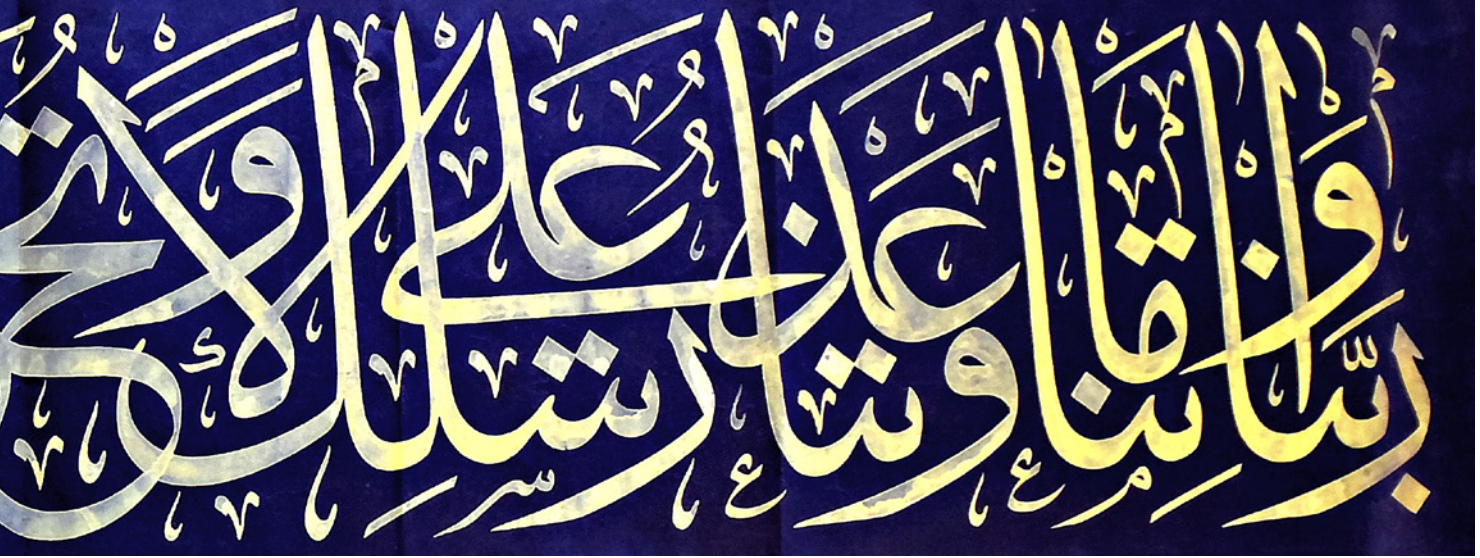 رَبَّنَا وَاٰتِنَا مَا وَعَدْتَنَا عَلٰى رُسُلِكَ وَلَا